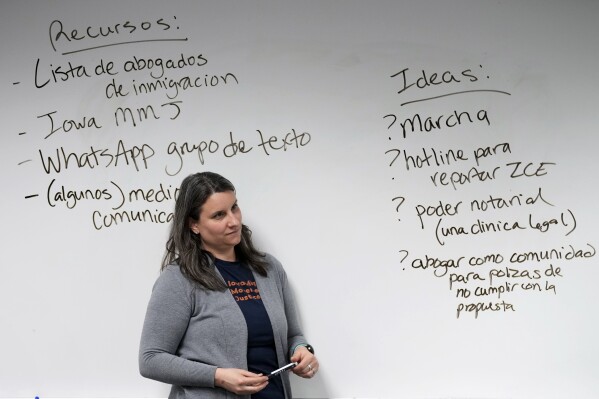 Recursos:
- Lista de abogados
de inmigracion
- Iowa MMJ
- WhatsApp grupo de texto
- (algunos) medio
comunica
Ideas:
? Marcha
? hotline para
reportar ICE
? poder notarial
(una clinica legal)
? abogar como comunidad
para polizas de
no cumplir con la
propuesta